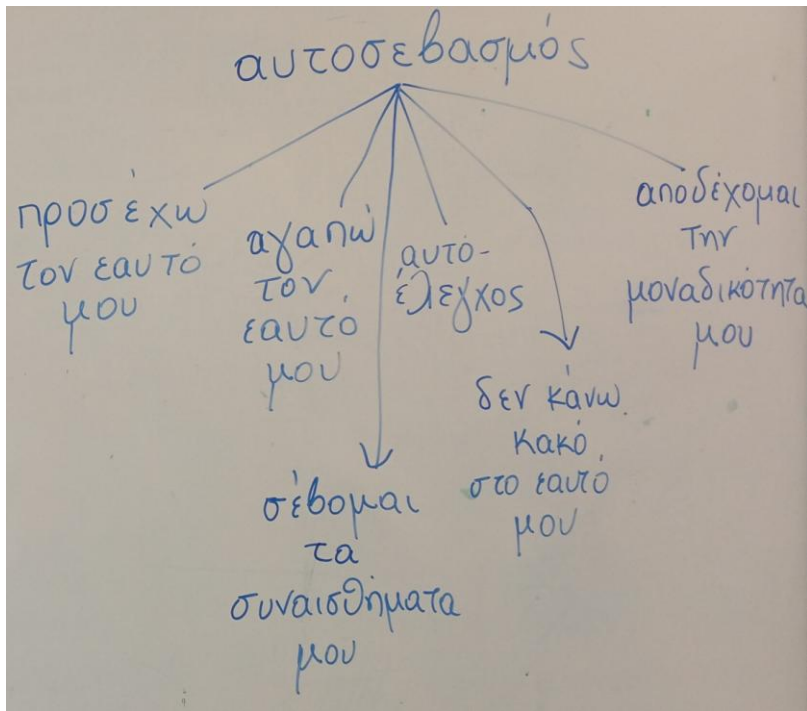 αυτοσεβασμός
προσέχω
τον εαυτό
μου
αγαπώ
τον
εαυτό
μου
σέβομαι
τα
συναισθήματα
μου
αυτό-
έλεγχος
δεν κάνω
κακό
στο εαυτό
μου
αποδέχομαι
την
μοναδικότητα
μου